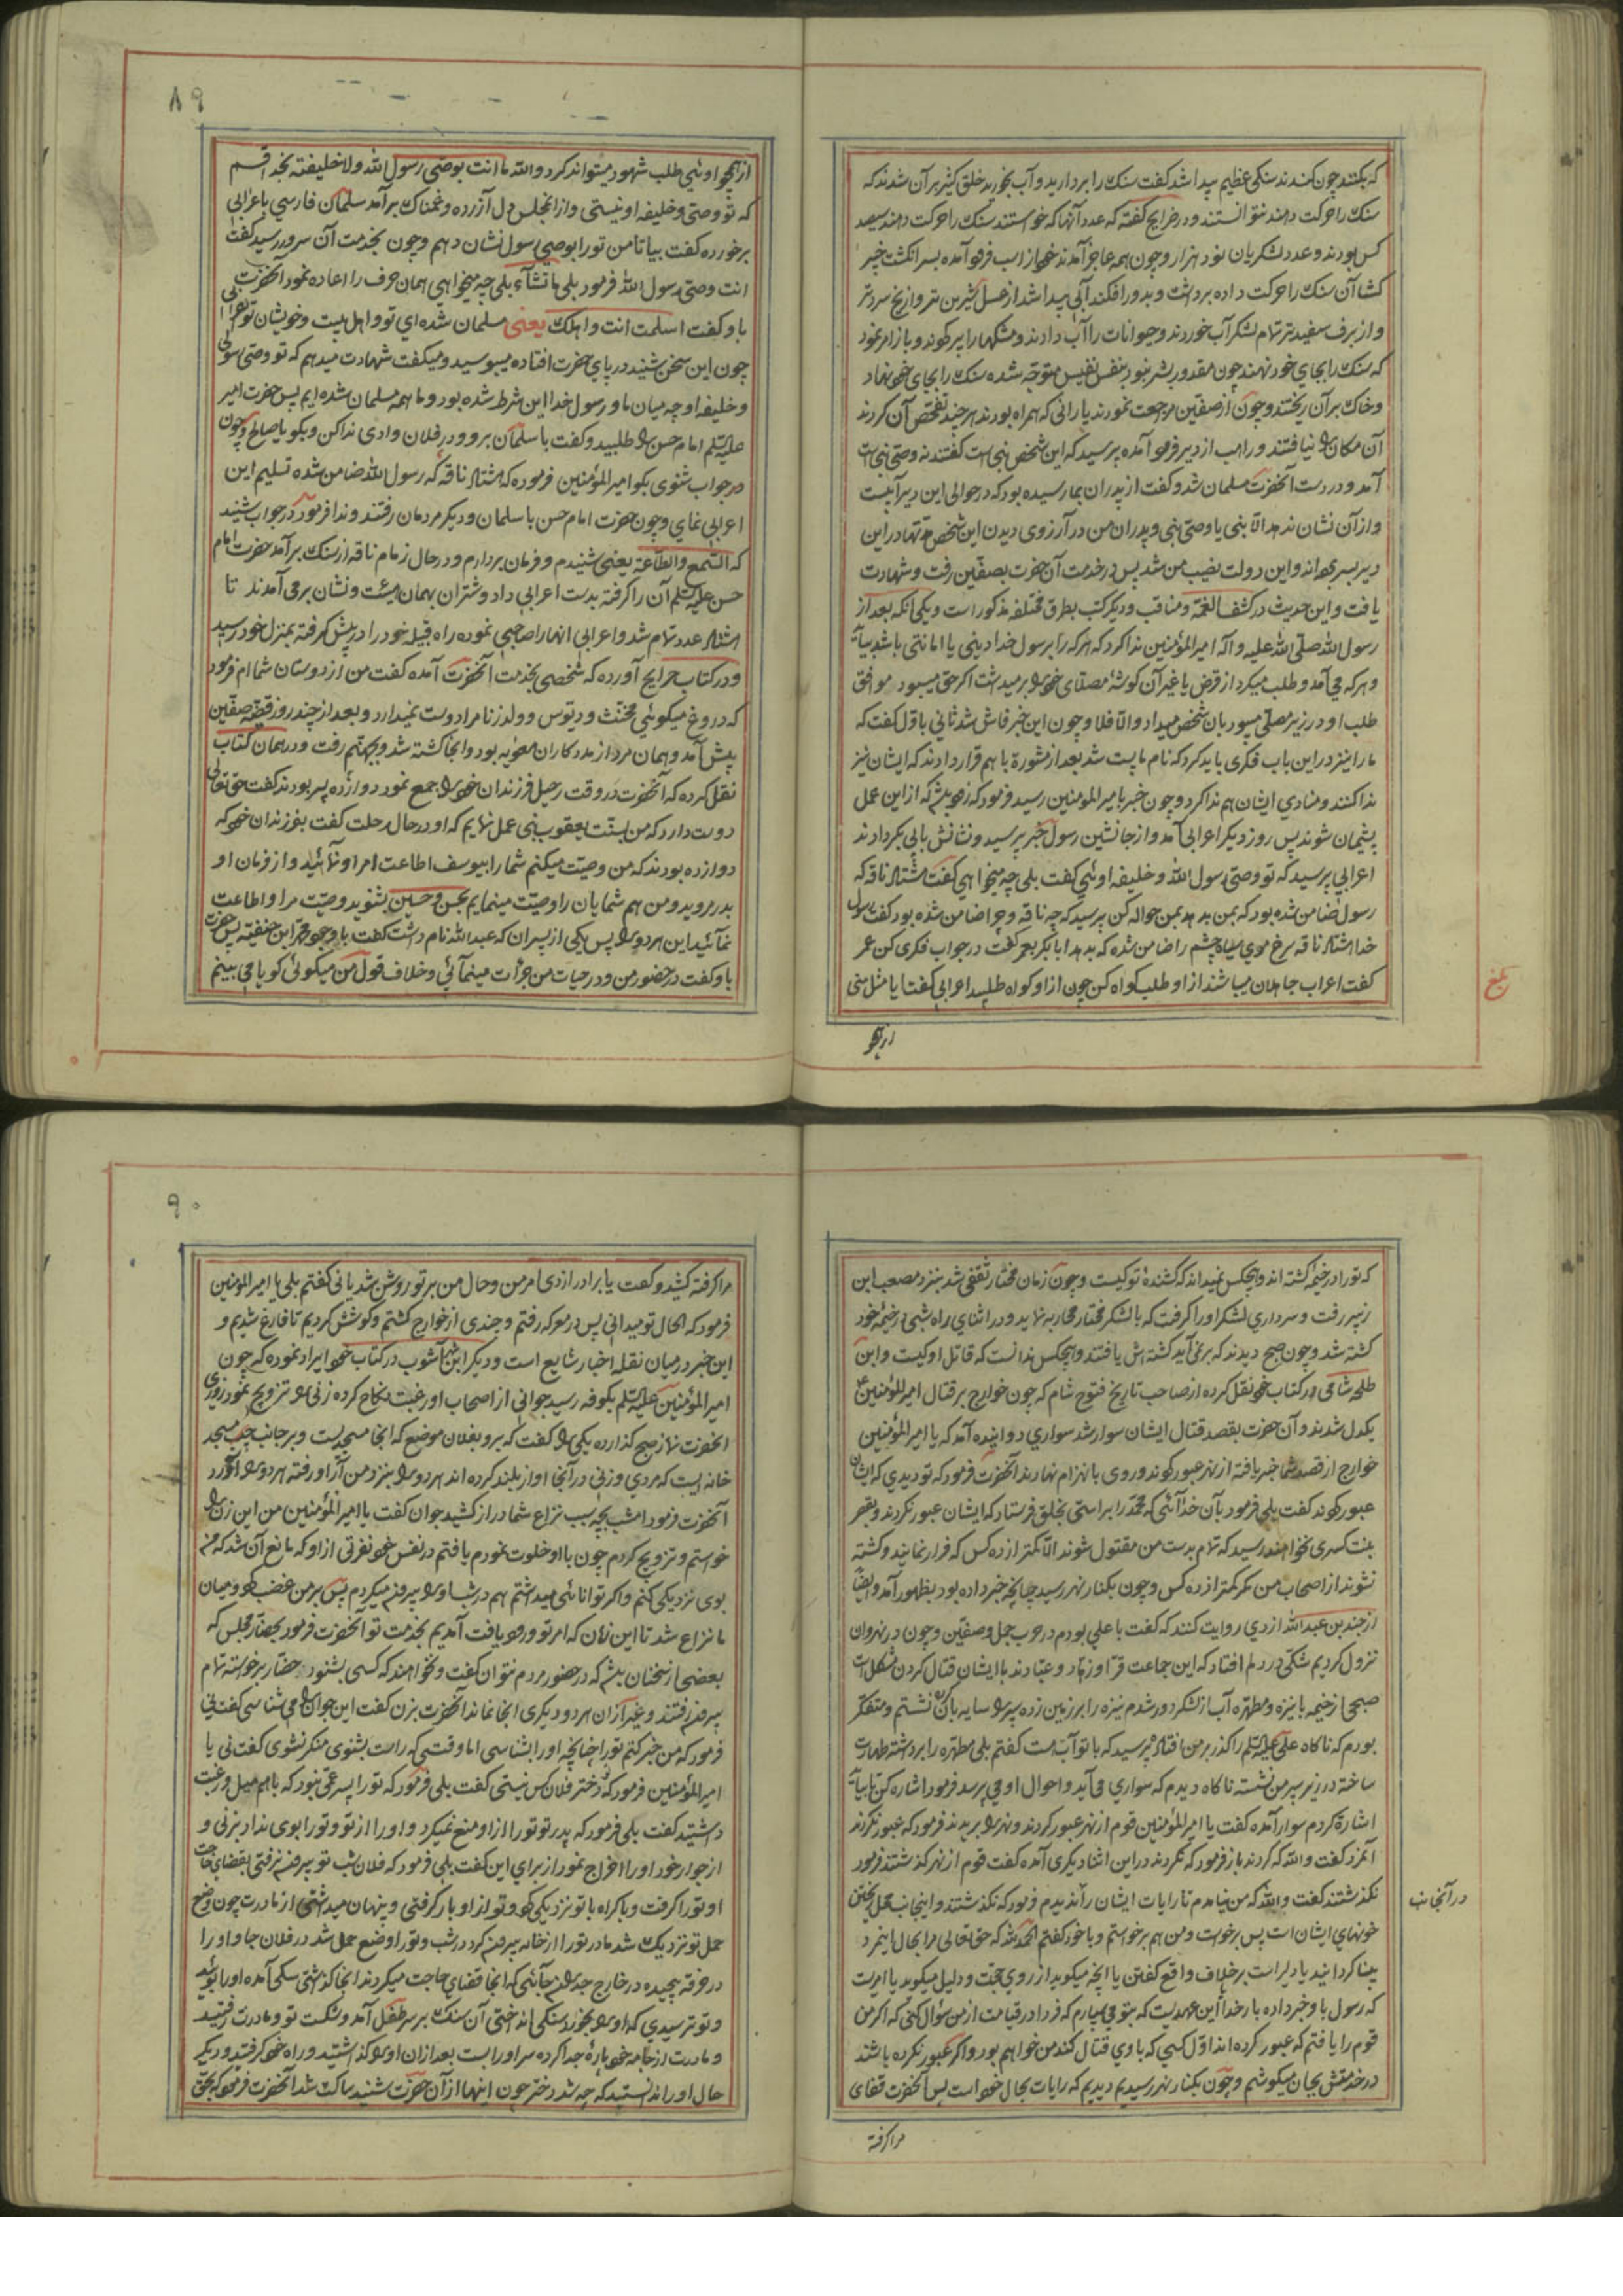 که بکنند چون کندند سنکی عظیم پیدا شد کفت سنک را بردارید و آب بخورید خلق کثیر بر آن شدند که
سنک را حرکت دهند نتوانستند و در خرایج کفته که عدد آنها که خواستند سنک را حرکت دهند سیصد
کس بودند و عدد لشکریان نود هزار و چون همه عاجز آمدند خود از اسب فرود آمده بسر انکشت خیبر
کشا آن سنک را حرکت داده برداشت و بدور افکند آبی پیدا شد از عسل شیرین تر و از یخ سردتر
و از برف سفیدتر تمام لشکر آب خوردند و حیوانات را آب دادند و مشکها را پر کردند و باز امر نمود
که سنک را بجای خود نهند چون مقدور بشر نبود بنفس نفیس متوجه شده سنک را بجای خود نهاد
و خاک بر آن ریختند و چون از صفین مراجعت نمودند یارانی که همراه بودند هر چند تفحص آن کردند
آن مکان را نیافتند و راهب از دیر فرود آمده پرسید که این شخص نبی است کفتند نه وصی نبی است
آمد و در دست آنحضرت مسلمان شد و کفت از پدران بما رسیده بود که در حوالی این دیر آبیست
و از آن نشان ندهد الا نبی یا وصی نبی و پدران من در آرزوی دیدن این شخص مدتها در این
دیر بسر برده‌اند و این دولت نصیب من شد پس در خدمت آن حضرت بصفین رفت و شهادت
یافت و این حدیث در کشف الغمة و مناقب و دیکر کتب بطرق مختلفه مذکور است و یکی آنکه بعد از
رسول الله صلی الله علیه و آله امیر المؤمنین ندا کرد که هر که را بر رسول خدا دینی یا امانتی باشد بیاید
و هر که می آمد و طلب میکرد از قرض یا غیر آن کوشهٔ مصلای خود را برمیداشت اکر حق میبود موافق
طلب او در زیر مصلی میبود بآن شخص میداد و الا فلا و چون این خبر فاش شد ثانی باول کفت که
ما را نیز در این باب فکری باید کرد که نام ما پست شد بعد از مشورة با هم قرار دادند که ایشان نیز
ندا کنند و منادی ایشان هم ندا کرد و چون خبر بامیر المومنین رسید فرمود که زود باشد که از این عمل
پشیمان شوند پس روز دیکر اعرابی آمد و از جانشین رسول خبر پرسید و نشانش بابی بکر دادند
اعرابی پرسید که تو وصی رسول الله و خلیفه اوئی کفت بلی چه میخواهی کفت هشتاد ناقه که
رسول ضامن شده بود که بمن بدهد بمن حواله کن پرسید که چه ناقه و چرا ضامن شده بود کفت رسول
خدا هشتاد ناقه سرخ موی سیاه چشم را ضامن شده که بدهد ابابکر بعمر کفت در جواب فکری کن عمر
کفت اعراب جاهلان میباشند از او طلب کواه کن چون از او کواه طلبید اعرابی کفت آیا مثل منی
از همچو
بلغ
۸۹
از همچو اوئی طلب شهود میتواند کرد والله ما انت بوصی رسول الله ولا خلیفته بخدا قسم
که تو وصی و خلیفه او نیستی و از انمجلس دل آزرده و غمناک برآمد سلمان فارسی باعرابی
برخورده کفت بیا تا من تو را بوصی رسول نشان دهم و چون بخدمت آن سرور رسید کفت
انت وصی رسول الله فرمود بلی ما تشآء بلی چه میخواهی همان حرف را اعاده نمود آنحضرت
باو کفت اسلمت انت و اهلک یعنی مسلمان شده‌ای تو و اهل بیت و خویشان تو اعرابی
چون این سخن شنید در پای حضرت افتاده میبوسید و میکفت شهادت میدهم که تو وصی رسولی
و خلیفه او چه میان ما و رسول خدا این شرط شده بود و ما همه مسلمان شده ایم پس حضرت امیر
علیه السلام امام حسن را طلبید و کفت با سلمان برو و در فلان وادی ندا کن و بکو یا صالح و چون
در جواب شنوی بکو امیر المؤمنین فرموده که هشتاد ناقه که رسول الله ضامن شده تسلیم این
اعرابی نمای و چون حضرت امام حسن با سلمان و دیکر مردمان رفتند و ندا فرمود در جواب شنید
که السمع والطاعة یعنی شنیدم و فرمان بردارم و در حال زمام ناقه از سنک برآمد حضرت امام
حسن علیه السلام آن را کرفته بدست اعرابی داد و شتران بهمان هیئت و نشان برمی آمدند تا
هشتاد عدد تمام شد و اعرابی انها را صاحبی نموده راه قبیله خود را در پیش کرفته بمنزل خود رسید
و در کتاب خرایج آورده که شخصی بخدمت آنحضرت آمده کفت من از دوستان شما ام فرمود
که دروغ میکوئی مخنث و دیوس و ولد زنا مرا دوست نمیدارد و بعد از چند روز قضیه صفین
پیش آمد و همان مرد از مددکاران معویه بود و انجا کشته شد و بجهنم رفت و در همان کتاب
نقل کرده که آنحضرت در وقت رحیل فرزندان خود را جمع نمود دوازده پسر بودند کفت حق تعالی
دوست دارد که من بسنت یعقوب نبی عمل نمایم که او در حال رحلت کفت بفرزندان خود که
دوازده بودند که من وصیت میکنم شما را بیوسف اطاعت امر او نمآئید و از فرمان او
بدر مروید و من هم شمایان را وصیت مینمایم بحسن و حسین بشنوید وصیت مرا و اطاعت
نمآئید این هر دو را پس یکی از پسران که عبد الله نام داشت کفت با وجود محمد ابن حنفیه پس حضرت
باو کفت در حضور من و در حیات من جرأت مینمآئی و خلاف قول من میکوئی کویا می بینم
که تو را در خیمهٔ کشته اند و هیچکس نمیداند که کشندهٔ تو کیست و چون زمان مختار ثقفی شد بنزد مصعب ابن
زبیر رفت و سرداری لشکر او را کرفت که با لشکر مختار محاربه نماید و در اثنای راه شبی در خیمهٔ خود
کشته شد و چون صبح دیدند که برنمی آید کشته اش یافتند و هیچکس ندانست که قاتل او کیست و ابن
طلحه شامی در کتاب خود نقل کرده از صاحب تاریخ فتوح شام که چون خوارج بر قتال امیر المؤمنین
یکدل شدند و آن حضرت بقصد قتال ایشان سوار شد سواری دوانیده آمد که یا امیر المؤمنین
خوارج از قصد شما خبر یافته از نهر عبور کردند و روی بانهزام نهادند آنحضرت فرمود که تو دیدی که ایشان
عبور کردند کفت بلی فرمود بآن خدآئی که محمد را براستی بخلق فرستاد که ایشان عبور نکردند و بقصر
بنت کسری نخواهند رسید که تمام بدست من مقتول شوند الا کمتر از ده کس که فرار نمایند و کشته
نشوند از اصحاب من مکر کمتر از ده کس و چون بکنار نهر رسید چنانچه خبر داده بود بظهور آمد و ایضا
از جندب بن عبد الله ازدی روایت کنند که کفت با علی بودم در حرب جمل و صفین و چون در نهروان
نزول کردیم شکی در دلم افتاد که این جماعت قرّا و زهّاد و عبّادند با ایشان قتال کردن مشکل است
صبحی از خیمه با نیزه و مطهره آب از لشکر دور شدم نیزه را بر زمین زده سپر را سایه بان نشستم و متفکر
بودم که ناکاه علی علیه السلام را کذر بر من افتاد پرسید که با تو آب هست کفتم بلی مطهره را برداشته طهارت
ساخته در زیر سپر من نشسته ناکاه دیدم که سواری می آید و احوال او می پرسد فرمود اشاره کن تا بیاید
اشاره کردم سوار آمده کفت یا امیر المؤمنین قوم از نهر عبور کردند و نهر را بریدند فرمود که عبور نکردند
آنمرد کفت والله که کردند باز فرمود که نکردند در این اثنا دیکری آمده کفت قوم از نهر کذشتند فرمود
نکذشتند کفت والله که من نیامدم تا رایات ایشان را ندیدم فرمود که نکذشتند و اینجانب محل ریختن
خونهای ایشان است پس برخواست و من هم برخواستم و با خود کفتم الحمد لله که حق تعالی مرا بحال اینمرد
بینا کردانید یا دلیر است بر خلاف واقع کفتن یا انچه میکوید از روی حجت و دلیل میکوید یا امریست
که رسول باو خبر داده بار خدا این عهدیست که بتو می سپارم که فردا در قیامت از من سوال کنی که اکر من
قوم را یافتم که عبور کرده اند اول کسی که با وی قتال کند من خواهم بود و اکر عبور نکرده باشند
در خدمتش بجان میکوشم و چون بکنار نهر رسیدیم دیدیم که رایات بحال خود است پس آنحضرت قفای
در آنجانب
مرا کرفته
۹۰
مرا کرفته کشید و کفت یا برادر ازدی امر من و حال من بر تو روشن شد یا نی کفتم بلی یا امیر المؤمنین
فرمود که الحال تو میدانی پس در معرکه رفتم و چندی از خوارج کشتم و کوشش کردیم تا فارغ شدیم و
این خبر در میان نقله اخبار شایع است و دیکر ابن شهر آشوب در کتاب خود ایراد نموده که چون
امیر المؤمنین علیه السلام بکوفه رسید جوانی از اصحاب او رغبت نکاح کرده زنی را تزویج نمود روزی
انحضرت نماز صبح کذارده یکی را کفت که برو بفلان موضع که انجا مسجدیست و بر جانب چپ مسجد
خانه ایست که مردی و زنی در آنجا اواز بلند کرده اند هر دو را بنزد من آر او رفته هر دو را آورد
آنحضرت فرمود امشب بچه سبب نزاع شما دراز کشید جوان کفت یا امیر المؤمنین من این زن را
خواستم و تزویج کردم چون با او خلوت نمودم یافتم در نفس خود نفرتی از او که مانع آن شد که من
بوی نزدیکی کنم و اکر توانائی میداشتم هم در شب او را بیرون میکردم پس بر من غضب کرد و میان
ما نزاع شد تا این زمان که امر تو ورود یافت آمدیم بخدمت تو آنحضرت فرمود بحضار مجلس که
بعضی از سخنان باشد که در حضور مردم نتوان کفت و نخواهند که کسی بشنود حضار برخواسته تمام
بیرون رفتند و غیر از ان هر دو دیکری انجا نماند آنحضرت بزن کفت این جوان را می شناسی کفت نی
فرمود که من خبر کنم تو را چنانچه او را بشناسی اما وقتی که راست بشنوی منکر نشوی کفت نی یا
امیر المؤمنین فرمود که دختر فلان کس نیستی کفت بلی فرمود که تو را پسر عمی نبود که با هم میل و رغبت
داشتید کفت بلی فرمود که پدر تو تو را از او منع نمیکرد و او را از تو و تو را بوی نداد بزنی و
از جوار خود او را اخراج نمود از برای این کفت بلی فرمود که فلان شب تو بیرون نرفتی بقضای حاجت
او تو را کرفت و باکراه با تو نزدیکی کرد و تو از او بار کرفتی و پنهان میداشتی از مادرت چون وضع
حمل تو نزدیک شد مادر تو را از خانه بیرون کرد در شب و تو را وضع حمل شد در فلان جا و او را
در خرقه پیچیده در خارج جدران جآئی که انجا قضای حاجت میکردند انجا کذاشتی سکی آمده او را بوئید
و تو ترسیدی که او را بخورد سنکی انداختی آن سنک بر سر طفل آمد و شکست تو و مادرت رفتید
و مادرت از جامه خود پارهٔ جدا کرده سر او را بست بعد از ان او را کذاشتید و راه خود کرفتید و دیکر
حال او را ندانستید که چه شد دختر چون اینها از آن حضرت شنید ساکت شد آنحضرت فرمود که بحق